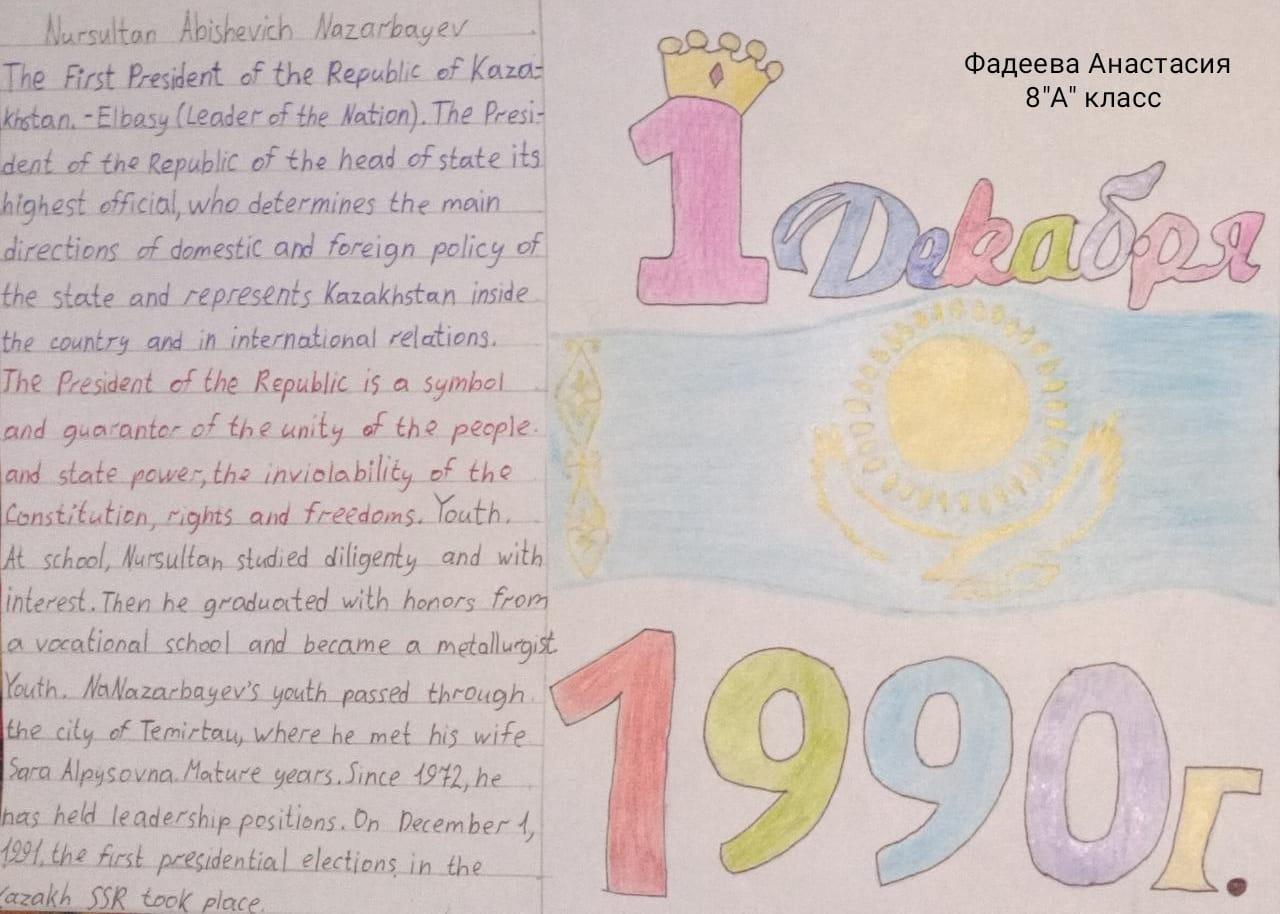 Nursultan Abishevich Nazarbayev
The First President of the Republic of Kaza-
khstan. -Elbasy (Leader of the Nation). The Presi-
dent of the Republic of the head of state its
highest official, who determines the main
directions of domestic and foreign policy of
the state and represents Kazakhstan inside
the country and in international relations.
The President of the Republic is a symbol
and guarantor of the unity of the people.
and state power, the inviolability of the
Constitution, rights and freedoms. Youth.
At school, Nursultan studied diligenty and with
interest. Then he graduated with honors from
a vocational school and became a metallurgist
Youth. NaNazarbayev's youth passed through
the city of Temirtau, where he met his wife
Sara Alpysovna. Mature years. Since 1972, he
has held leadership positions. On December 1,
1991, the first presidential elections in the
Kazakh SSR took place.
Фадеева Анастасия
8"А" класс
1 Декабря
1990г.